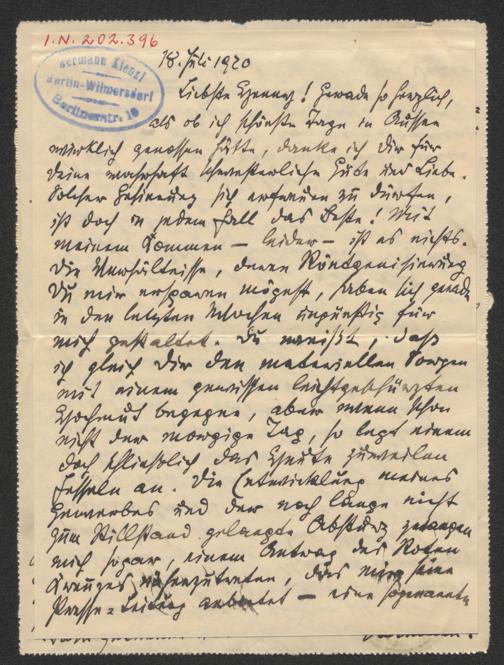 I.N. 202.396
Hermann Kienzl
Berlin-Wilmersdorf
Berlinerstr. 10
18. Juli 1920
Liebste Henny! Gerade so herzlich,
als ob ich schönste Tage in Aussee
wirklich genossen hätte, danke ich Dir für
Deine wahrhaft schwesterliche Güte und Liebe.
Solcher Gesinnung sich erfreuen zu dürfen,
ist doch in jedem Fall das Beste! Mit
meinem Kommen – leider – ist es nichts.
Die Verhältnisse, deren Röntgenisierung
Du mir ersparen mögest, haben sich gerade
in den letzten Wochen ungünstig für
mich gestaltet. Du weißt, daß
ich gleich Dir den materiellen Sorgen
mit einem gewissen leichtgeschürzten
Hochmut begegne, aber wenn schon
nicht der morgige Tag, so legt einem
doch schließlich das Heute zuweilen
Fesseln an. Die Entwicklung meines
Gewerbes und der noch lange nicht
zum Stillstand gelangte Absturz
mich sogar, einem Antrag des Roten
Kreuzes näherzutreten, das mir seine
Presse-Leitung anbietet – eine sogenannte